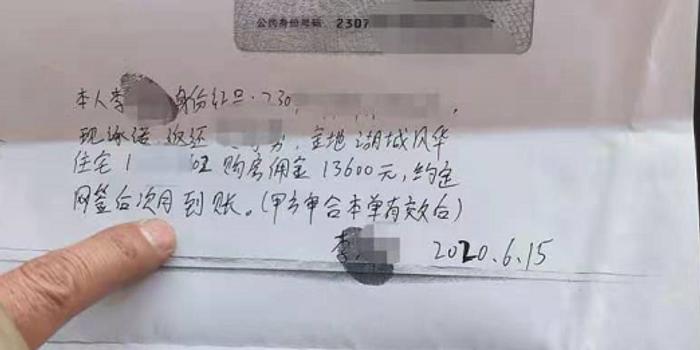 公民身份号码 2307
本人李 身份证号:230
现承诺返还 金地湖城风华
住宅1 旺购房佣金13600元,约定
网签后次月到账。(甲方审合本单有效后)
李 2020.6.15